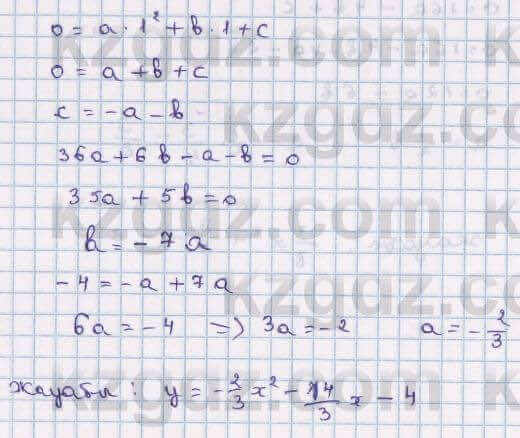 0 = a · 1² + b · 1 + c
0 = a + b + c
c = -a - b
36a + 6b - a - b = 0
35a + 5b = 0
b = -7a
-4 = -a + 7a
6a = -4 => 3a = -2 a = -2/3
жауабы: y = -2/3 x² - 14/3 x - 4
kzgdz.com
kzgdz.com
kzgdz.com
kzgdz.com